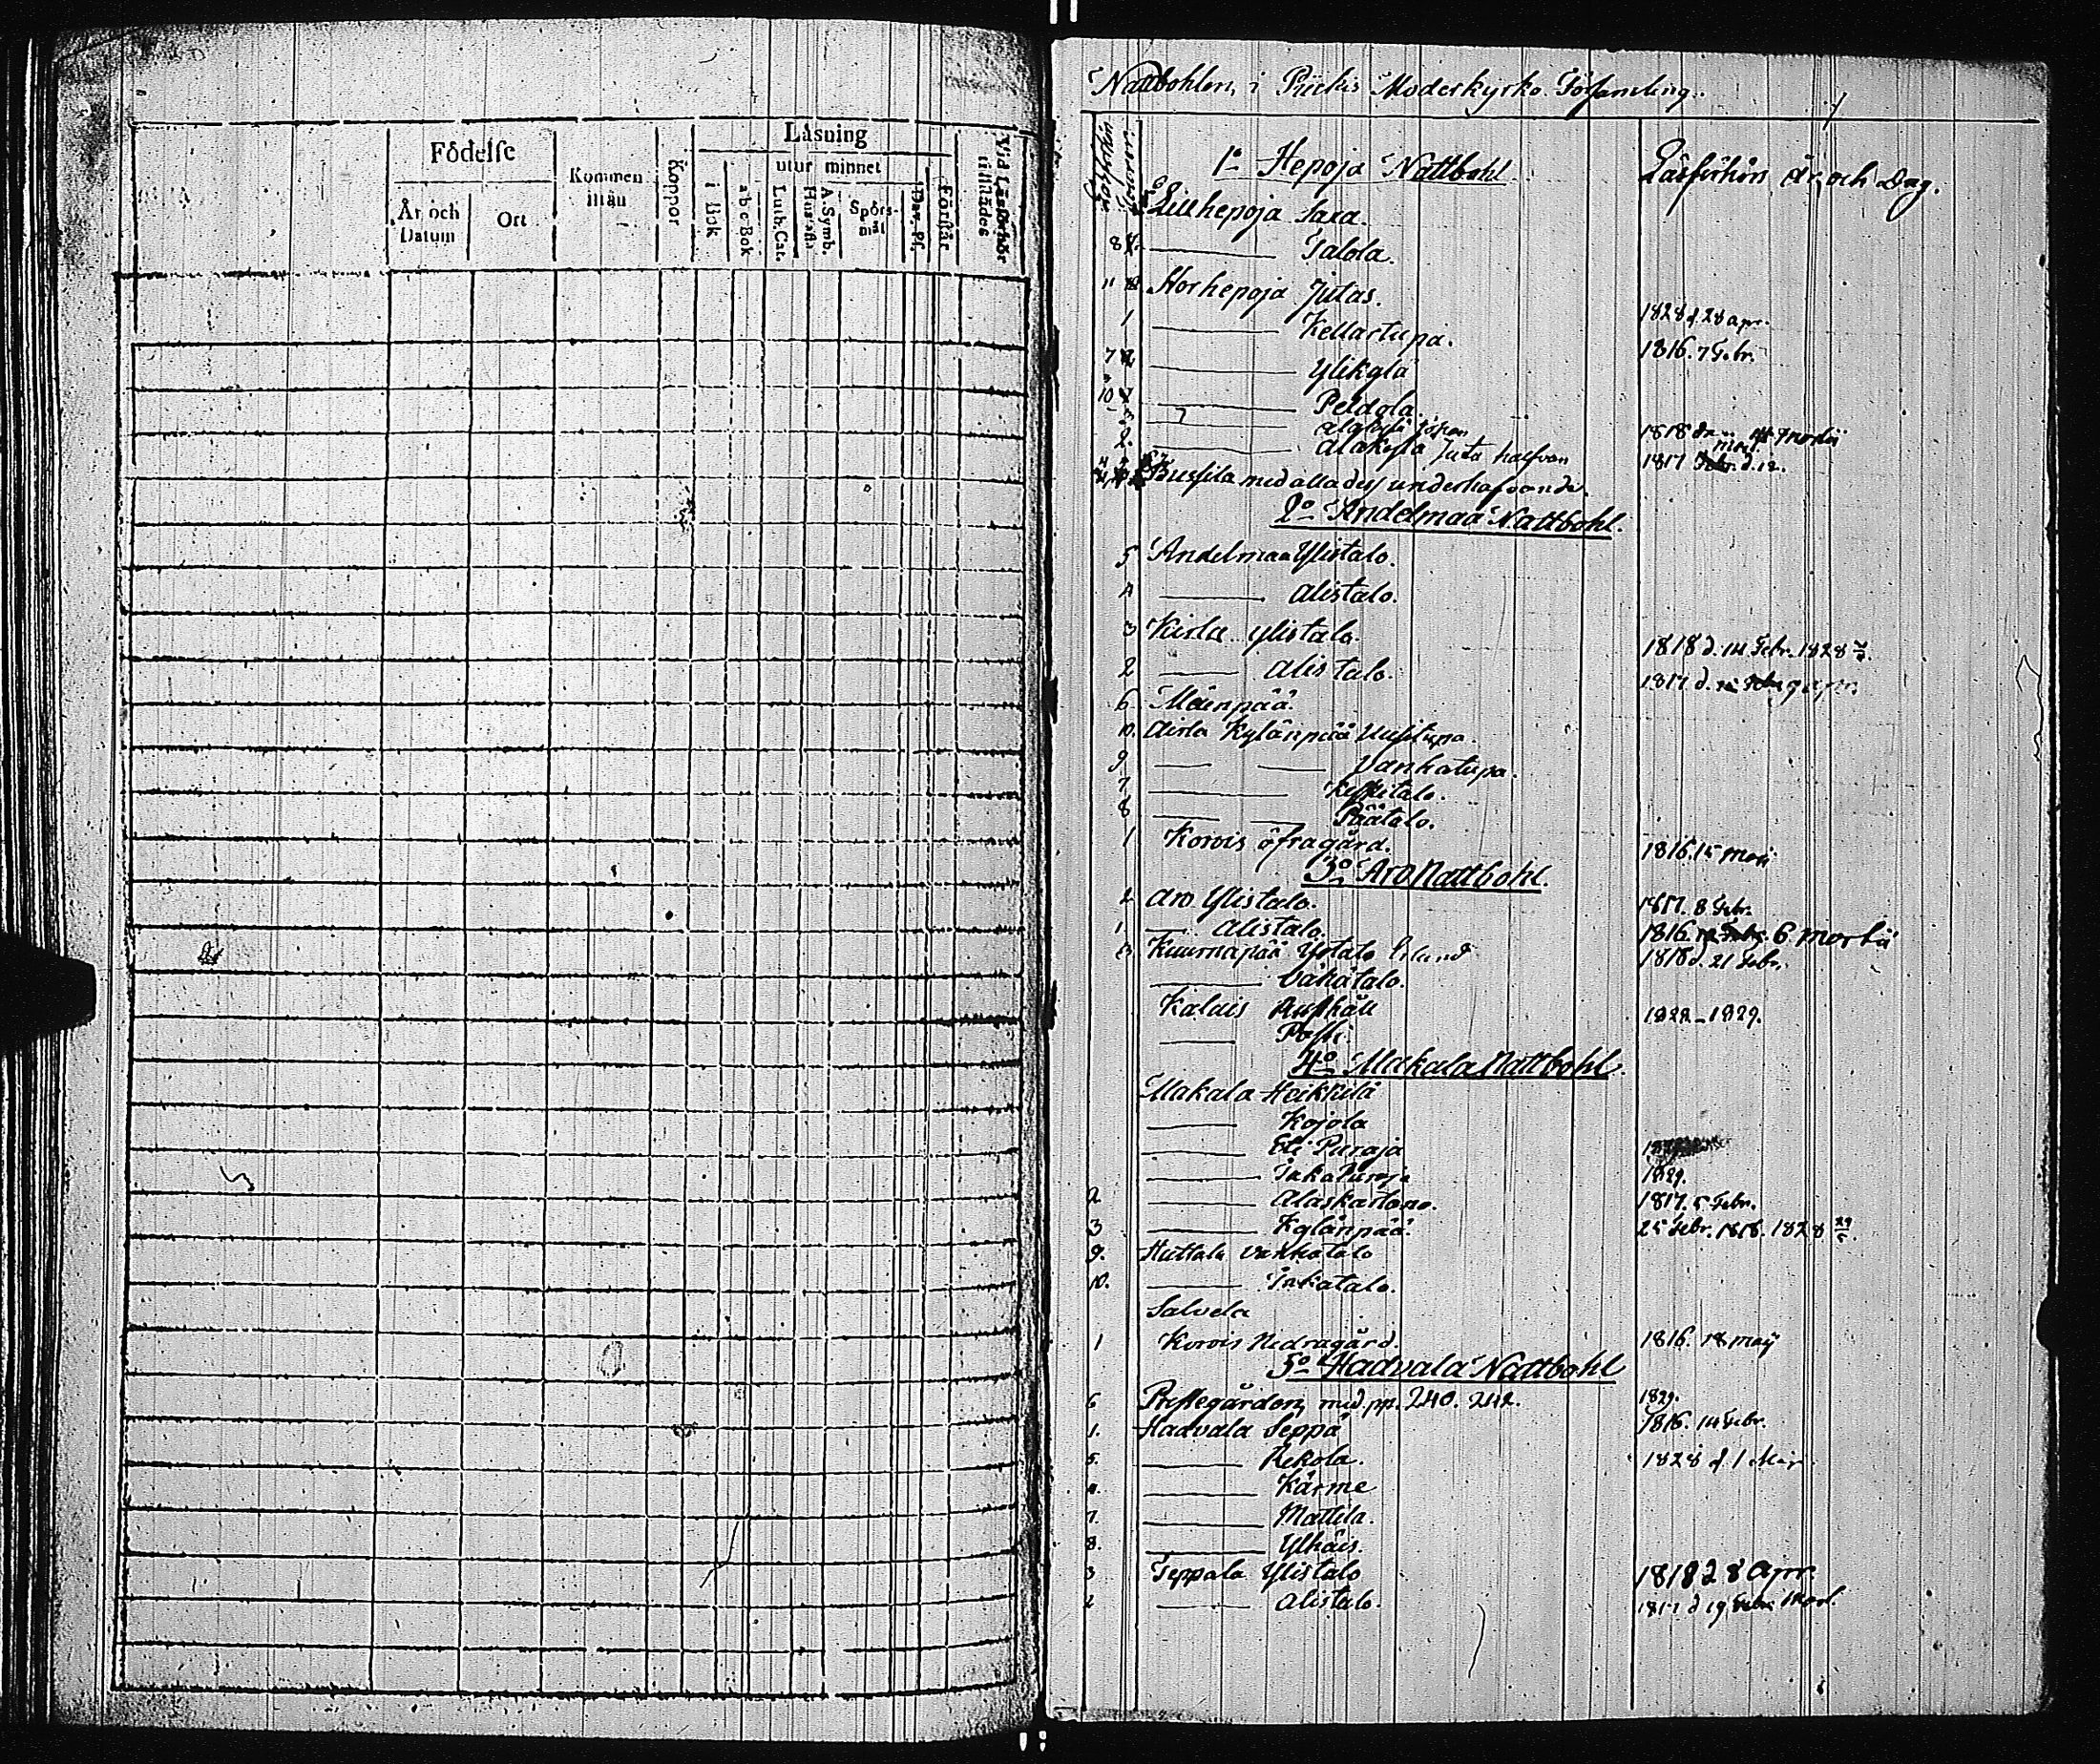 Födelse
År och Datum
Ort
Kommen ifrån
Koppor
Läsning
utur minnet
i Bok
a b c Bok
Luth. Cat.
Hustafla
A. Symb.
Spörsmål
Dav. Ps.
Förstår
Vid Läsförhör tillstädes
Nattbohlen, i Piickis Moderkyrko Församling.
1º Hepoja Nattbohl. Läsförhörs År och Dag.
Lillhepoja Saxa.
8 Talola.
11 Storhepoja Jutas. 1828 d. 28 apr.
1 Kellartupa. 1816. 7 Febr.
7 Ylikylä
10 Peldola.
3 1818
2. Alakylä Juta halfvan 1817 d. 12.
Bussila med alla dess underhafvande.
2º Andelmaa Nattbohl.
5 Andelmaa Ylistalo.
4 Alistalo.
3 Kirla Ylistalo. 1818 d. 14 Febr. 1828
2 Alistalo. 1817. d.
6 Mäenpää.
10. Airla Kylänpää Uusitupa.
9 Vanhatupa.
7 Keskitalo.
8 Päätalo.
1 Korvis öfragård. 1816. 15 Maji
3º Aro Nattbohl.
2 Aro Ylistalo. 1817. 8 Febr.
1 Alistalo. 1816. 6 Martii
3 Kuurnapää Ystalo 1818 d. 21 Febr.
Vähätalo.
Kalais Rusthåll 1828 - 1829.
Possi.
4º Makala Nattbohl.
Makala Heikkilä
Kojola
Eli Puraja
Takapuroja 1829.
2 Alaskartano. 1817. 5 Febr.
3 Kylänpää. 25 Febr. 1818. 1828
9. Huttala Vanhatalo
10. Takatalo.
Salvela
1 Korvis Nedragård. 1816. 18 Maji
5º Hadvala Nattbohl
6 Prestegården, med pp. 240. 242. 1829.
1. Hadvala Seppä 1816. 14 Febr.
5. Rekola. 1828 d 1 Maj
4. Kärme
7. Mattila.
8. Ylhäis.
3 Teppala Ylistalo 1818 d 8 Apr.
2 Alistalo. 1817 d 19 Mart.